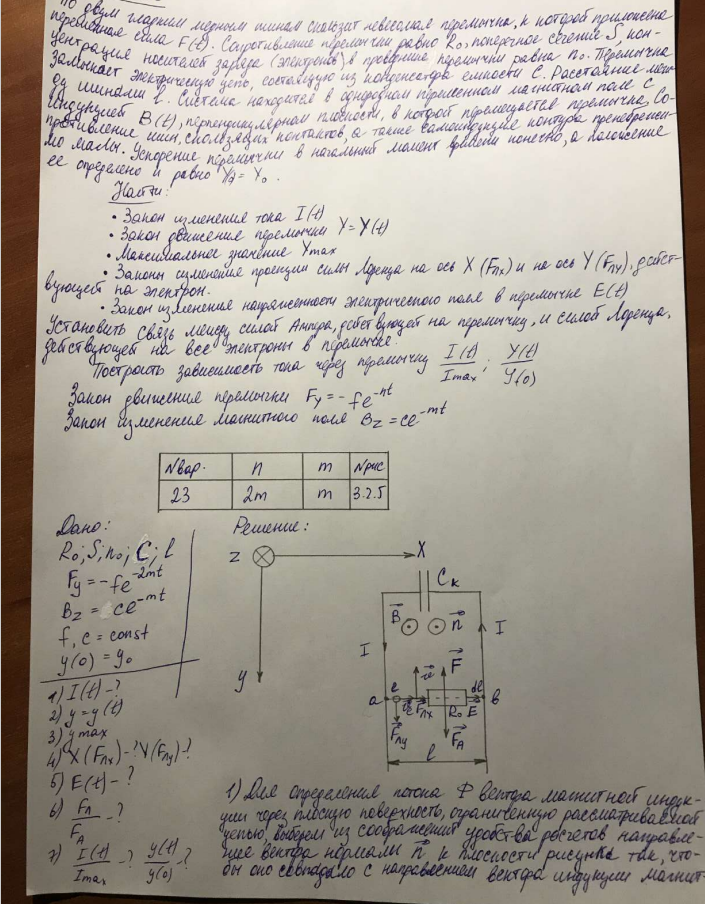 По двум гладким медным шинам скользит невесомая перемычка, к которой приложена
переменная сила F(t). Сопротивление перемычки равно R₀, поперечное сечение S, кон-
центрация носителей заряда (электронов) в проводнике перемычки равна n₀. Перемычка
замыкает электрическую цепь, состоящую из конденсатора емкости C. Расстояние меж-
ду шинами l. Система находится в однородном переменном магнитном поле с
индукцией B(t), перпендикулярном плоскости, в которой перемещается перемычка. Со-
противление шин, скользящих контактов, а также самоиндукция контура пренебрежи-
мо малы. Ускорение перемычки в начальный момент времени конечно, а положение
ее определено и равно = Y₀.
Найти:
• Закон изменения тока I(t)
• Закон движения перемычки Y = Y(t)
• Максимальное значение Ymax
• Законы изменения проекции силы Лоренца на ось X (Fлx) и на ось Y (Fлy), дейст-
вующей на электрон.
• Закон изменения напряженности электрического поля в перемычке E(t)
Установить связь между силой Ампера, действующей на перемычку, и силой Лоренца,
действующей на все электроны в перемычке.
Построить зависимость тока через перемычку I(t)/Imax ; Y(t)/Y(0)
Закон движения перемычки Fy = - fe^-nt
Закон изменения магнитного поля Bz = ce^-mt
Nвар. n m Nрис
23 2m m 3.2.5
Дано: Решение:
R₀; S; n₀; C; l
Fy = -fe^-2mt
Bz = ce^-mt
f, c = const
y(0) = y₀
1) I(t) - ?
2) y = y(t)
3) ymax
4) X(Fлx) - ? Y(Fлy) - ?
5) E(t) - ?
6) Fл/FА - ?
7) I(t)/Imax - ? y(t)/y(0) - ?
z X
y
Cк
B n
I I
F
a e Fлx R₀ E dl b
Fлy FА
l
1) Для определения потока Φ вектора магнитной индук-
ции через плоскую поверхность, ограниченную рассматриваемой
цепью, выберем из соображений удобства расчетов направле-
ние вектора нормали n к плоскости рисунка так, что-
бы оно совпадало с направлением вектора индукции магнит-